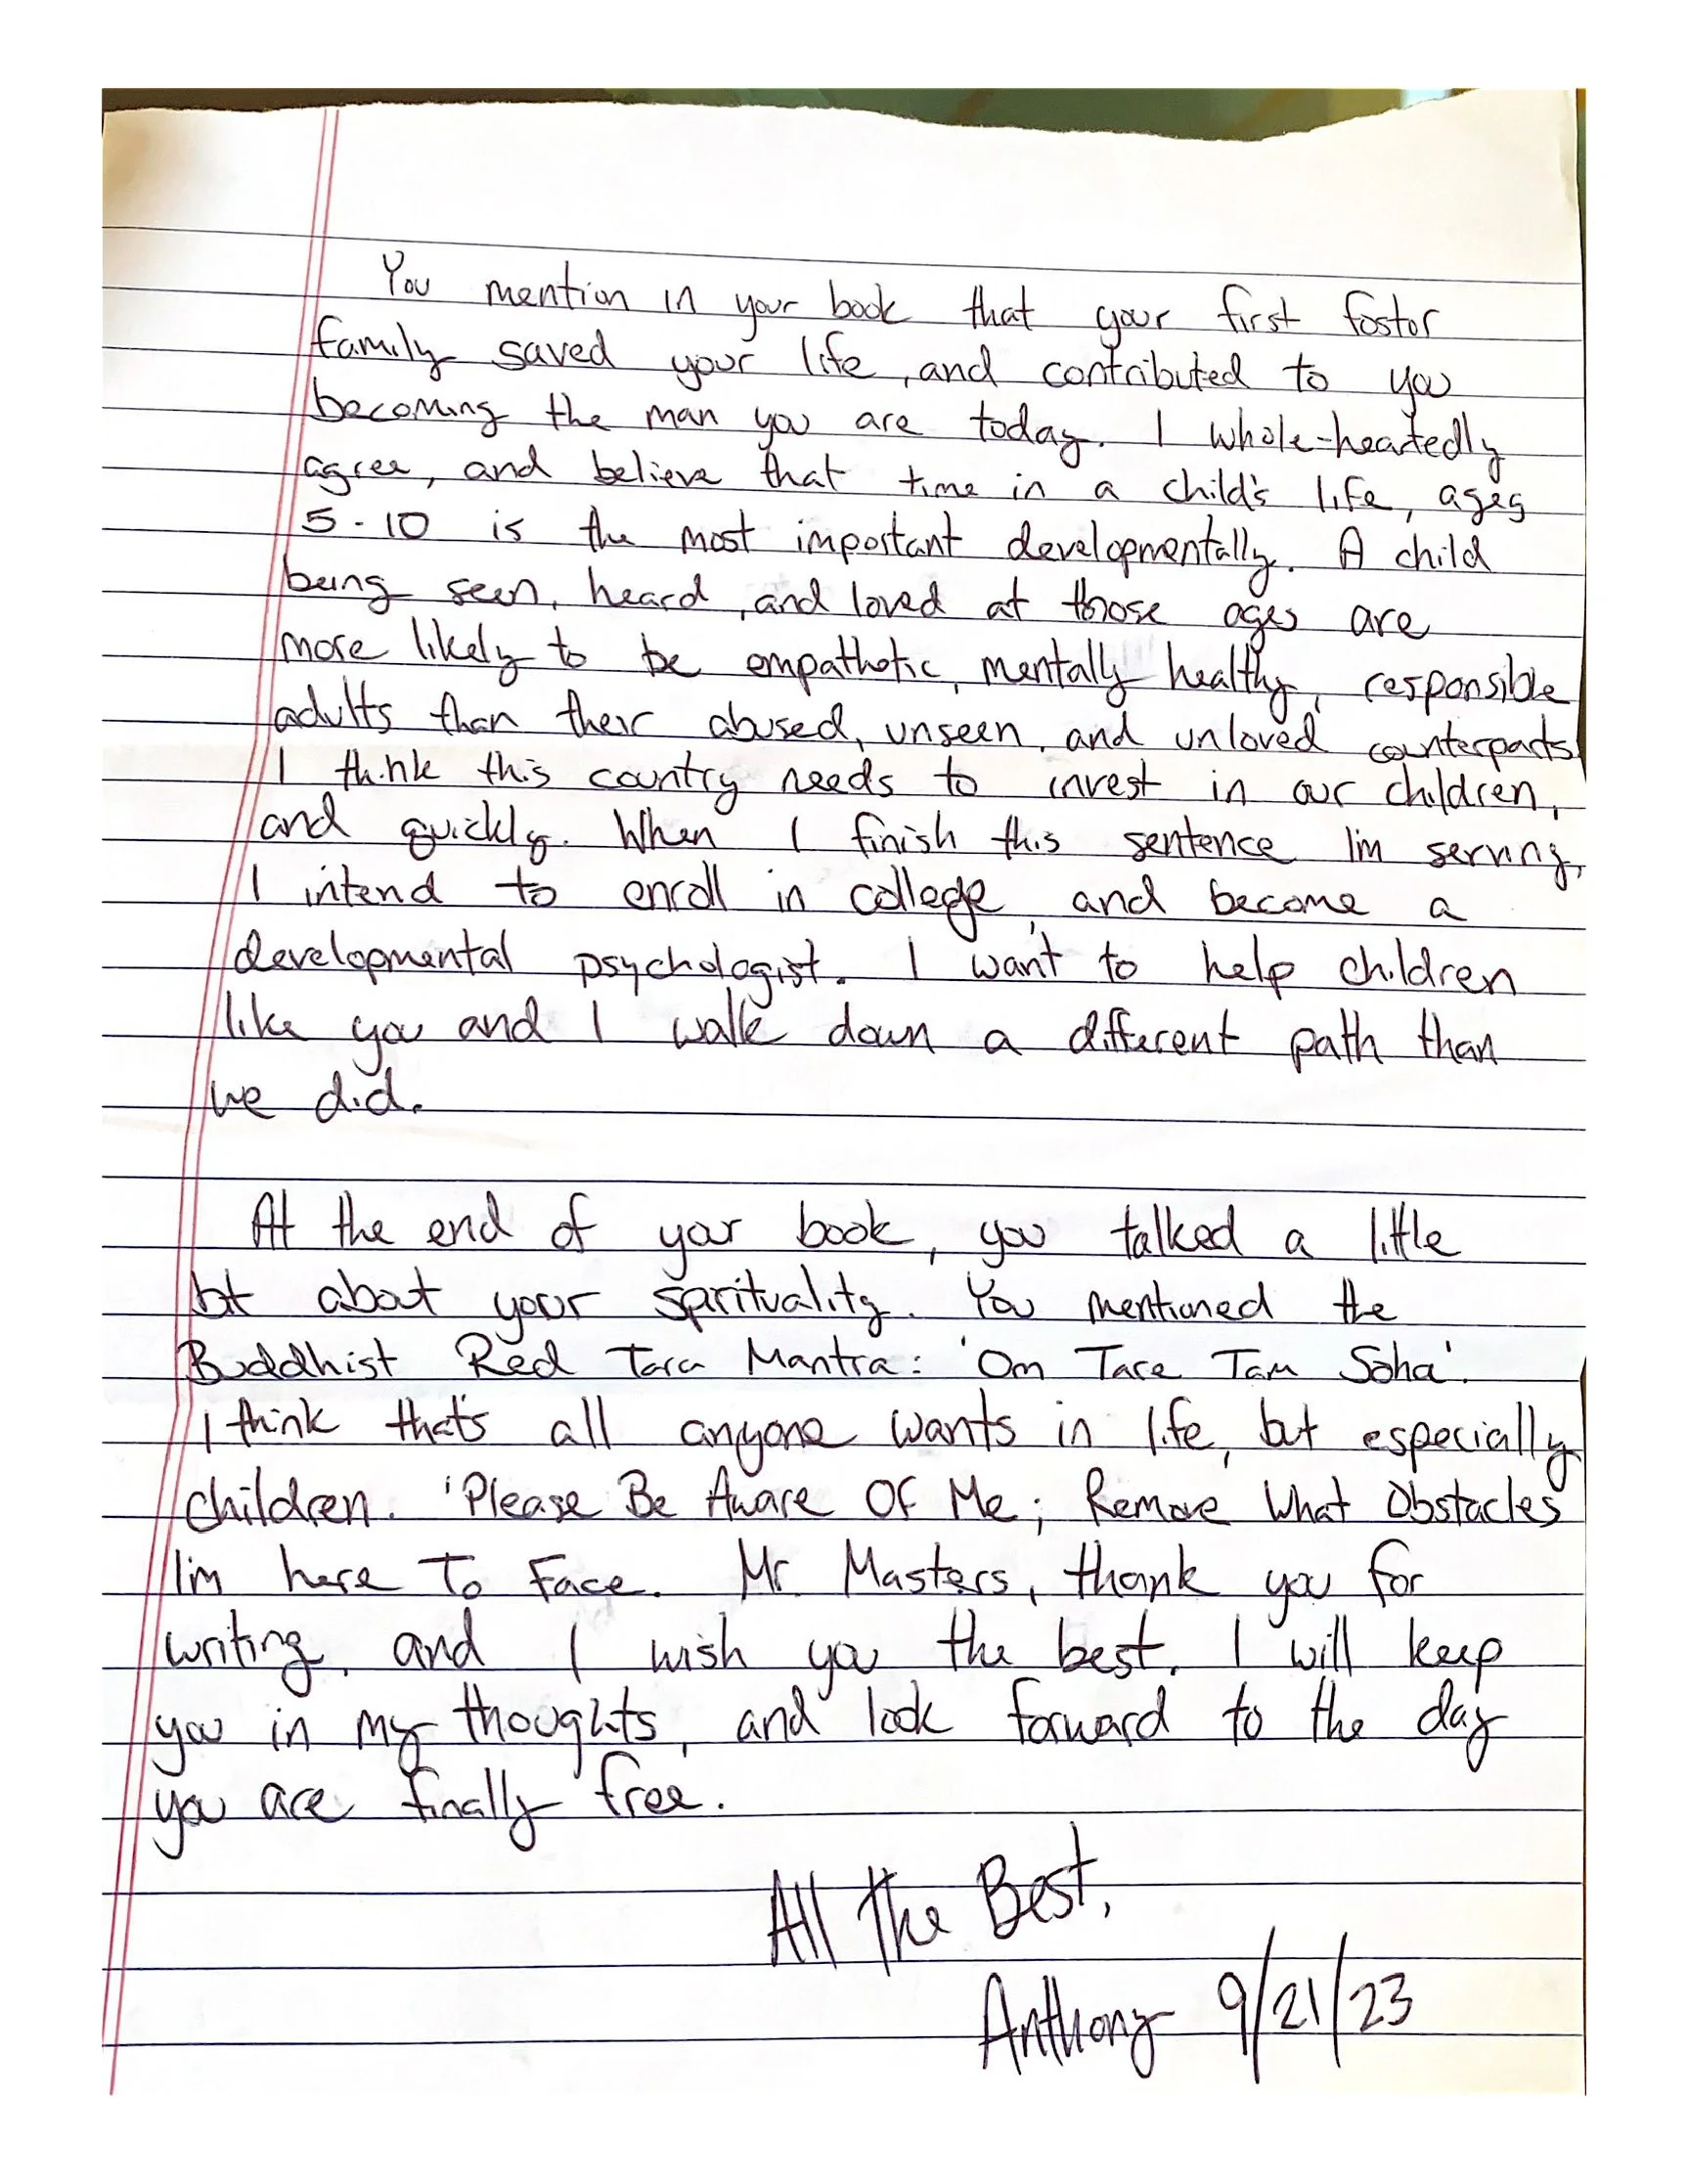 You mention in your book that your first fostor
family saved your life, and contributed to you
becoming the man you are today. I whole-heartedly
agree, and believe that time in a child's life, ages
5-10 is the most important developmentally. A child
being seen, heard, and loved at those ages are
more likely to be empathetic, mentally healthy, responsible
adults than their abused, unseen, and unloved counterparts
I think this country needs to invest in our children,
and quickly. When I finish this sentence I'm serving,
I intend to enroll in college, and become a
developmental psychologist. I want to help children
like you and I walk down a different path than
we did.
At the end of your book, you talked a little
bit about your spirituality. You mentioned the
Buddhist Red Tara Mantra: 'Om Tare Tam Soha'.
I think that's all anyone wants in life, but especially
children. 'Please Be Aware Of Me; Remove What Obstacles
I'm here To Face. Mr. Masters, thank you for
writing, and I wish you the best. I will keep
you in my thoughts, and look forward to the day
you are finally free.
All The Best,
Anthony 9/21/23